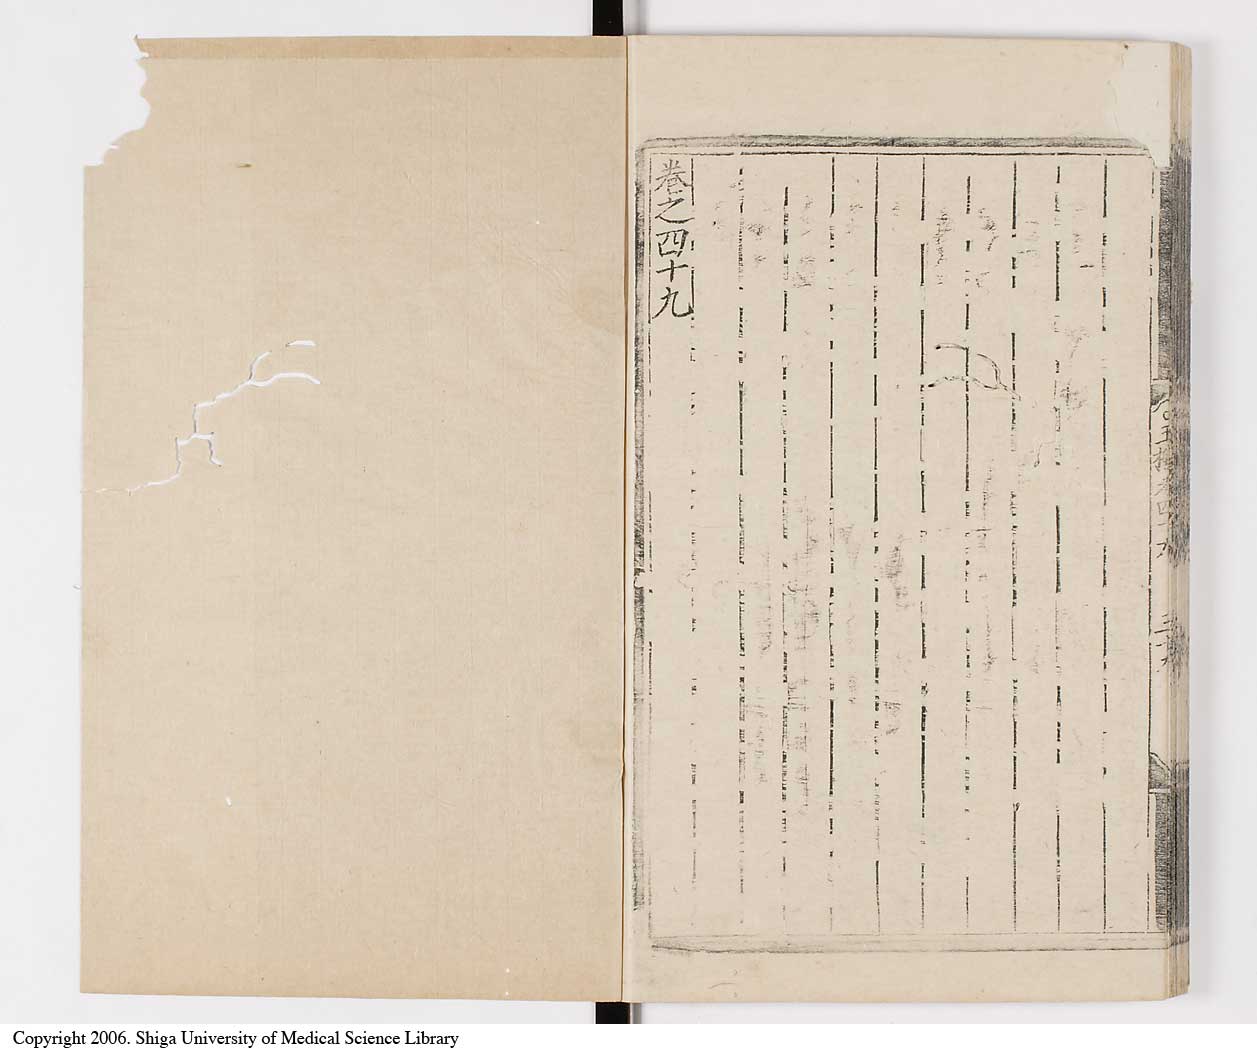 卷之四十九
Copyright 2006. Shiga University of Medical Science Library